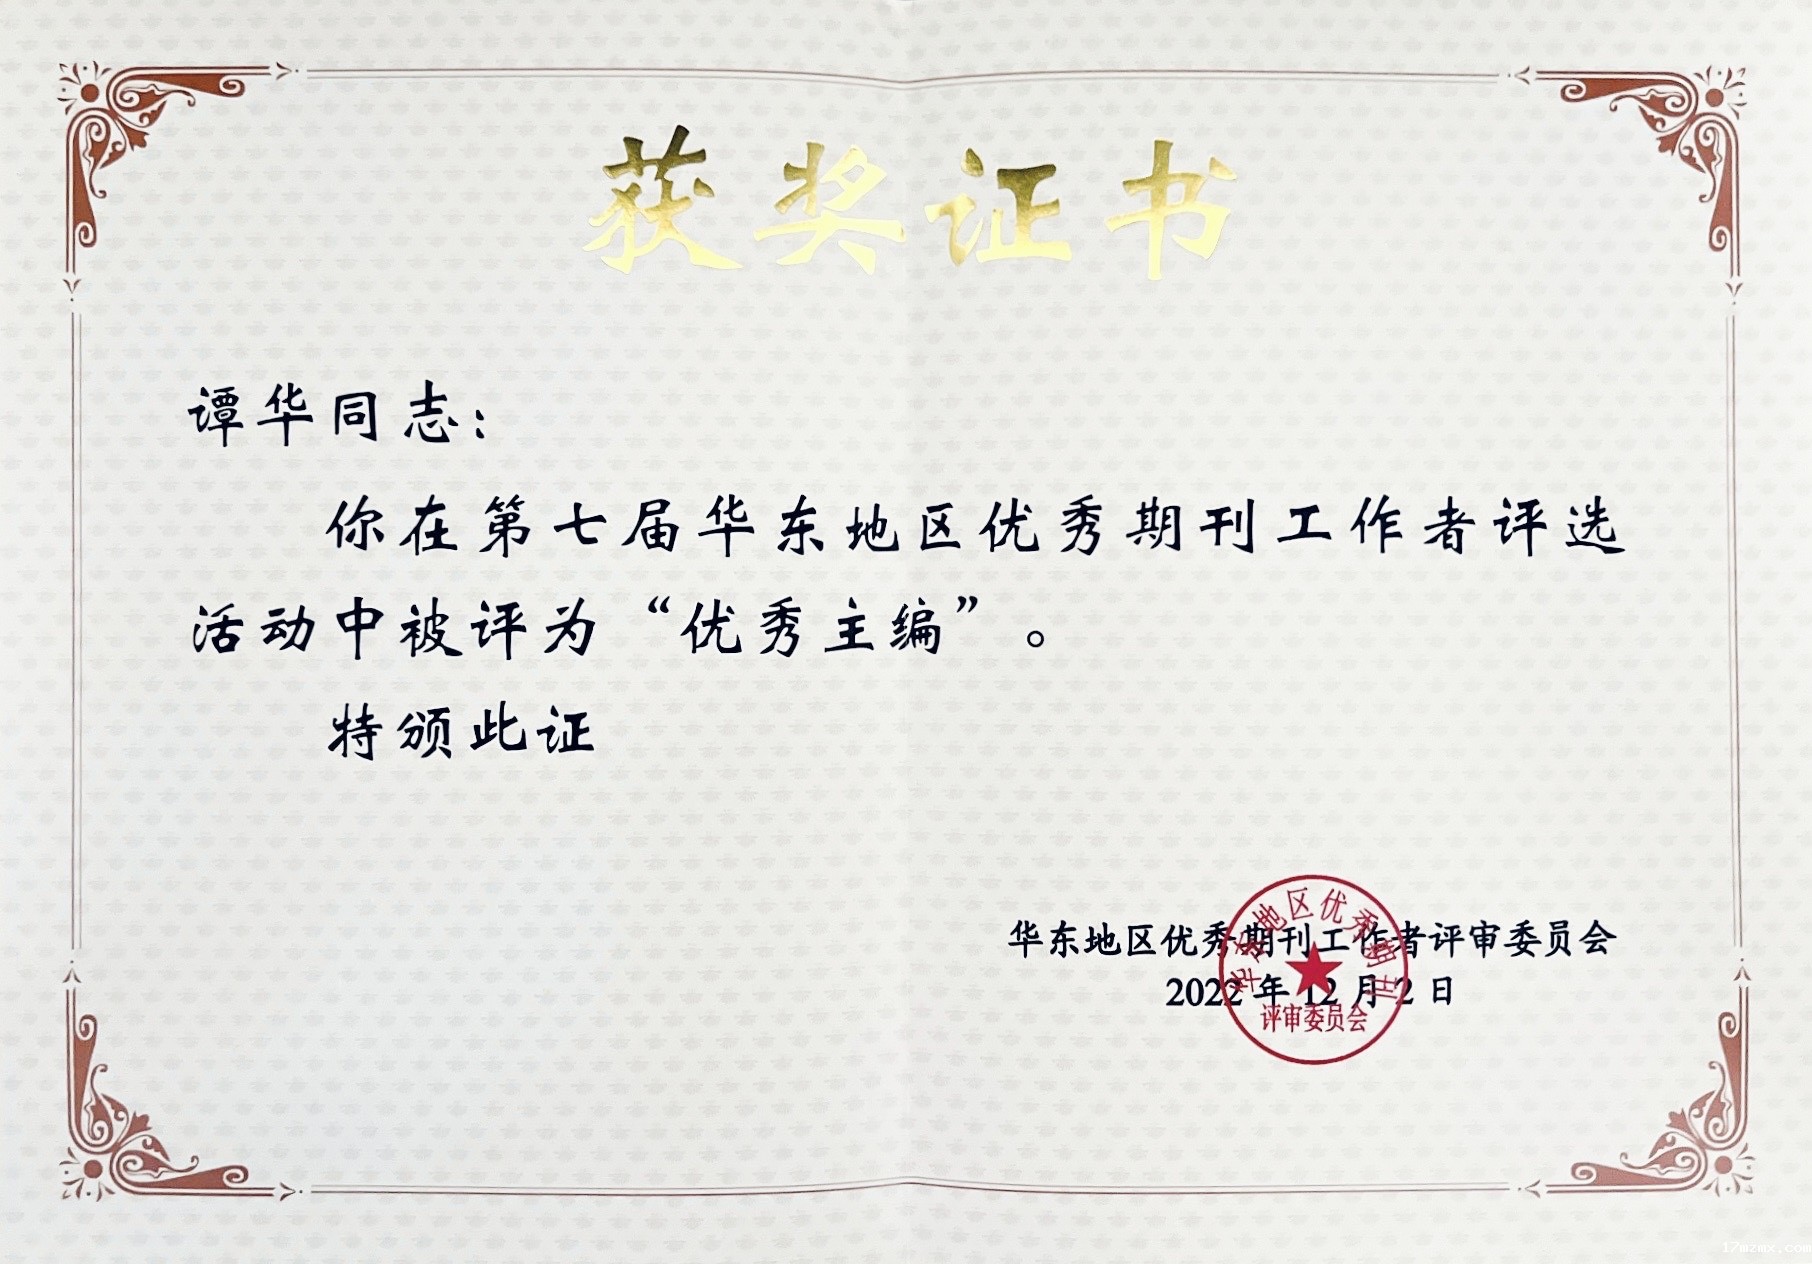 获奖证书
谭华同志：
你在第七届华东地区优秀期刊工作者评选
活动中被评为“优秀主编”。
特颁此证
华东地区优秀期刊工作者评审委员会
2022年12月2日
华东地区优秀期刊
评审委员会
17mzmx.com